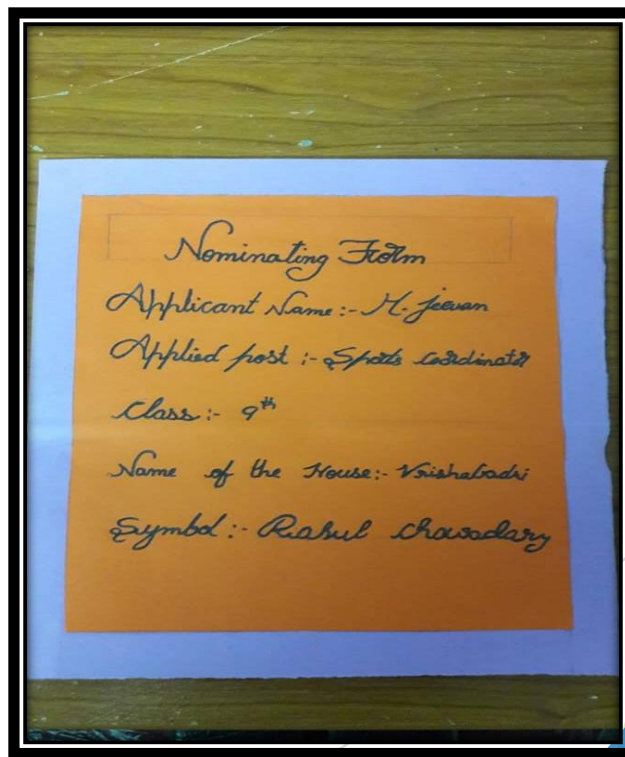 Nominating Form
Applicant Name:- M. Jeevan
Applied post :- Sports Coordinator
Class:- 9th
Name of the House:- Vrishabadri
Symbol:- Rahul Chowdary